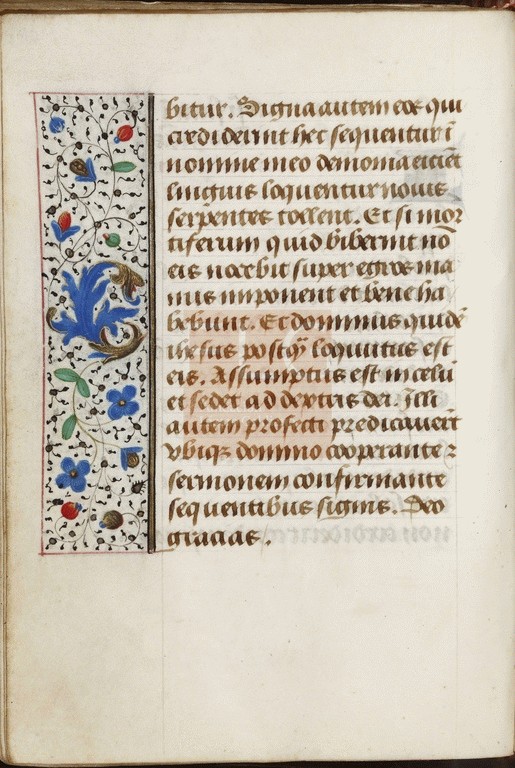 bitur. Signa autem eos qui
crediderint hec sequentur ī
nomine meo demonia eiciēt
linguis loquentur nouis
serpentes tollent. Et si mor
tiferum quid biberint nō
eis nocebit super egros ma
nus imponent et bene ha
bebunt. Et dominus quidē
ihesus postqꝫ loquutus est
eis. Assumptus est in celū
et sedet ad dextris dei. Illi
autem profecti predicauerūt
vbiqꝫ domino cooperante ⁊
sermonem confirmante
sequentibus signis. Deo
gracias.